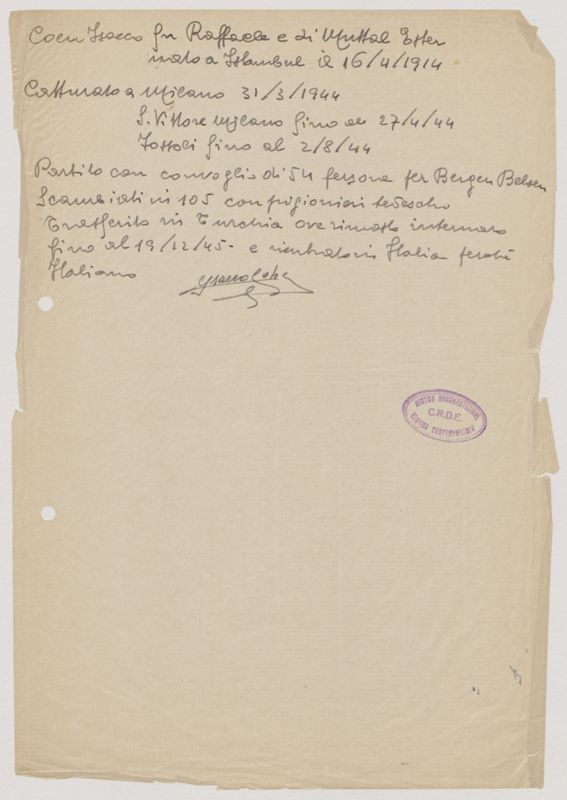 Coen Isacco fu Raffaele e di Muttal Ester
nato a Istambul il 16/4/1914
Catturato a Milano 31/3/1944
S. Vittore Milano fino al 27/4/44
Fossoli fino al 2/8/44
Partito con convoglio di 54 persone per Bergen Belsen
Scambiati in 105 con prigionieri tedeschi
Trasferito in Turchia ove rimasto internato
fino al 19/12/45 - e rientrato in Italia perchè
Italiano
CENTRO DOCUMENTAZIONE
C.R.D.E.
EBRAICA CONTEMPORANEA